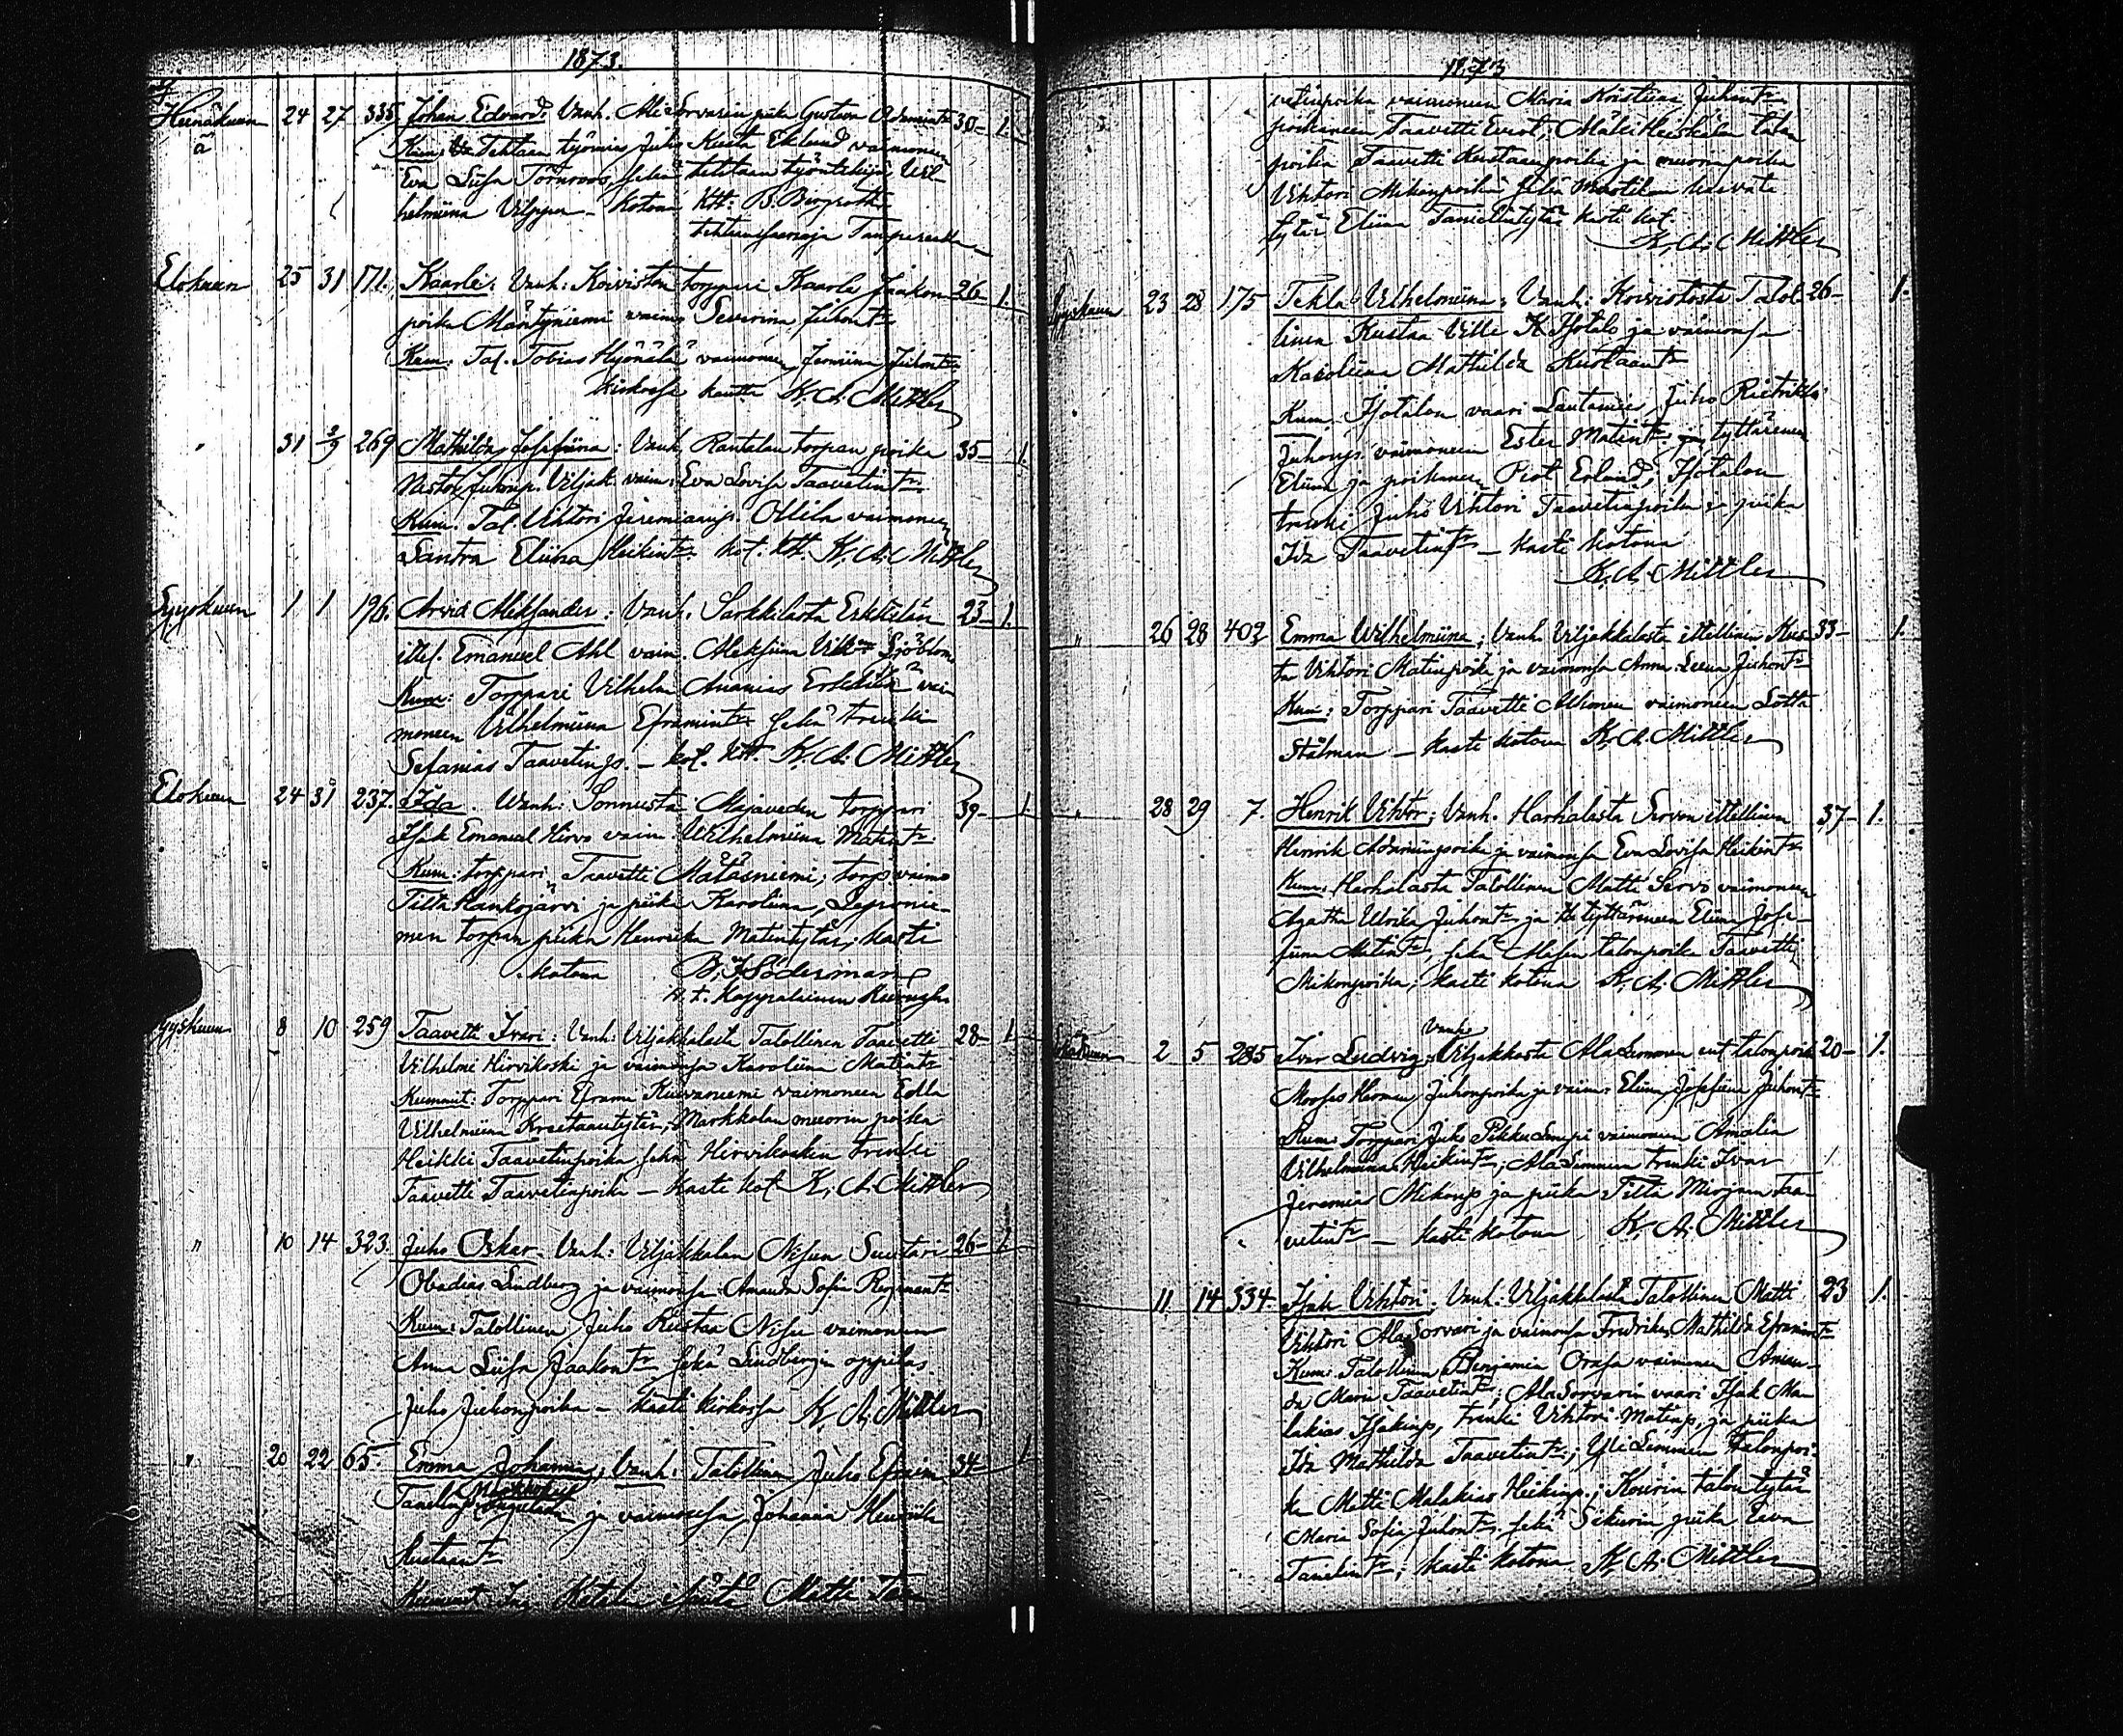 1873.
Heinäkuun 24 27 335. Johan Edvard: Vanh. AlaSorvarin piika Gustava Adamintr 30– 1.
ä Kum: Tehtaan työmies Juho Kusta Eklund vaimoneen
Eva Liisa Törnroos, sekä tehtaan työntekijä Vil-
helmiina Vilppu – Kotona Ktt: B. Bergroth
tehtaansaarnaaja Tampereella
Elokuun 25 31 171. Kaarle: Vanh: Koiviston torppari Kaarle Jaakon- 26– 1.
poika Mäntyniemi vaimo Severina Juhontr
Kum: Tal. Tobias Hyönälä vaimoneen Jemina Juhontr
kirkossa kautta K. A. Mittler
" 31 2/9 269 Mathilda Josefiina: Vanh. Rantalan torpan poika 35– 1.
Nestor Juhonp. Viljak. vaim: Eva Lovisa Taavetintr
Kum. Tal. Vihtori Jeremianp. Ollila vaimoneen
Santra Eliina Heikintr. kot. ktt. K. A. Mittler
Syyskuun 1 1 196. Arvid Aleksander: Vanh. Sarkkilasta Erkkilän 23– 1.
ittel. Emanuel Ahl vaim. Aleksiina Vilh. Sjöblom
Kum: Torppari Vilhelm Ananias Erkkilä vai-
moneen Vilhelmiina Eframintr sekä trenki
Sefanias Taavetinp. – kot. ktt. K. A. Mittler
Elokuun 24 31 237. Ida. Wanh: Sonnusta Majaveden torppari 39– 1
Isak Emanuel Hirvo vaim: Wilhelmiina Matintr.
Kum: torppari Taavetti Mätäsniemi, torp. vaimo
Tilta Hankojärvi ja piika Karoliina, Leponie-
men torpan piika Henrika Matintytär; Kasti
kotona B. F. Söderman
v. t. Kappalainen Kurussa
Syyskuun 8 10 259 Taavetti Ivari: Vanh: Viljakkalasta Talollinen Taavetti 28– 1
Vilhelmi Hirvikoski ja vaimonsa Karoliina Matintr
Kummit: Torppari Eframi Kiiveniemi vaimoneen Edla
Vilhelmiina Kustaantytär, Markkolan nuorin poika
Heikki Taavetinpoika sekä Hirvikosken trenki
Taavetti Taavetinpoika – kaste kot K. A. Mittler
" 10 14 323. Juho Oskar. Vanh: Viljakkalan Nisun Suutari 26– 1
Obadias Lindberg ja vaimonsa Amanda Sofia Regmantr
Kum: Talollinen Juho Kustaa Nisu vaimoneen
Anna Liisa Jaakontr sekä Lindbergin oppilas
Juho Juhonpoika – kasti kirkossa K. A. Mittler
" 20 22 65. Emma Johanna; Vanh: Talollinen Juho Efraim 34– 1
Tanelinp ja vaimonsa Johanna Henrika
Kustaantr
Kummit: Matti
1873
vetinpoika vaimoneen Maria Kristiina Juhontr
poikaneen Taavetti Evert; Mäki Heiskilan talon
poika Taavetti Kustaanpoika ja nuorinpoika
Vihtori Mikonpoika sekä Marttilan
tytär Eliina Tanielintytär kasti kot.
K. A. Mittler
Syyskuun 23 28 175 Tekla Vilhelmiina: Vanh: Koivistosta Talol- 26– 1.
linen Kustaa Ville K Isotalo ja vaimonsa
Karoliina Mathilda Kustaantr
Kum: Isotalon vaari Lautamies Juho Rietrikki
Juhonp. vaimoneen Ester Matintr ja tyttärineen
Eliina ja poikaneen Piot Erland; Isotalon
trenki Juho Vihtori Taavetinpoika ja piika
Ida Taavetintr – kasti kotona
K. A. Mittler
" 26 28 402 Emma Wilhelmiina; Vanh. Viljakkalasta ittellinen Kus- 33– 1.
ta Vihtori Matinpoika ja vaimonsa Anna Leena Juhontr
Kum: Torppari Taavetti Ahonen vaimoneen Lotta
Stålman – kaste kotona K. A. Mittler
" 28 29 7. Henrik Vihtor; Vanh. Harhalasta Servon ittellinen 37– 1.
Henrik Adaminpoika ja vaimonsa Eva Lovisa Heikintr
Kum: Harhalasta Talollinen Matti Servo vaimoneen
Agatha Ulrika Juhontr ja tyttäreneen Eliina Jose-
fiina Matintr, sekä talonpoika Taavetti
Mikonpoika; kasti kotona K. A. Mittler
Lokakuun 2 5 285 Ivar Ludvig; Vanh. Viljakkasta AlaSimmen ent talonpoik 20– 1.
Mooses Herman Juhonpoika ja vaim: Eliina Josefiina Juhontr
Kum: Torppari Juho vaimoneen Amalia
Vilhelmiina Heikintr; AlaSimmen trenki Ivar
Jeremias Mikonp ja piika Tilta Mirjam Taa-
vetintr – kasti kotona K. A. Mittler
11 14 334 Isak Vihtori; Vanh: Viljakkalasta Talollinen Matti 23 1.
Vihtori AlaSorvari ja vaimonsa Fredrika Mathilda Eframintr
Kum: Talollinen Benjamin Orasa vaimoneen Aman-
da Maria Taavetintr; AlaSorvarin vaari Isak Ma-
lakias Isakinp, trenki Vihtori Matinp, ja piika
Ida Mathilda Taavetintr; YliSimmen talonpoi-
ka Matti Malakias Heikinp.; Kourin talon tytär
Maria Sofia Juhontr, sekä Sikurin piika Eeva
Tanelintr; kasti kotona K. A. Mittler